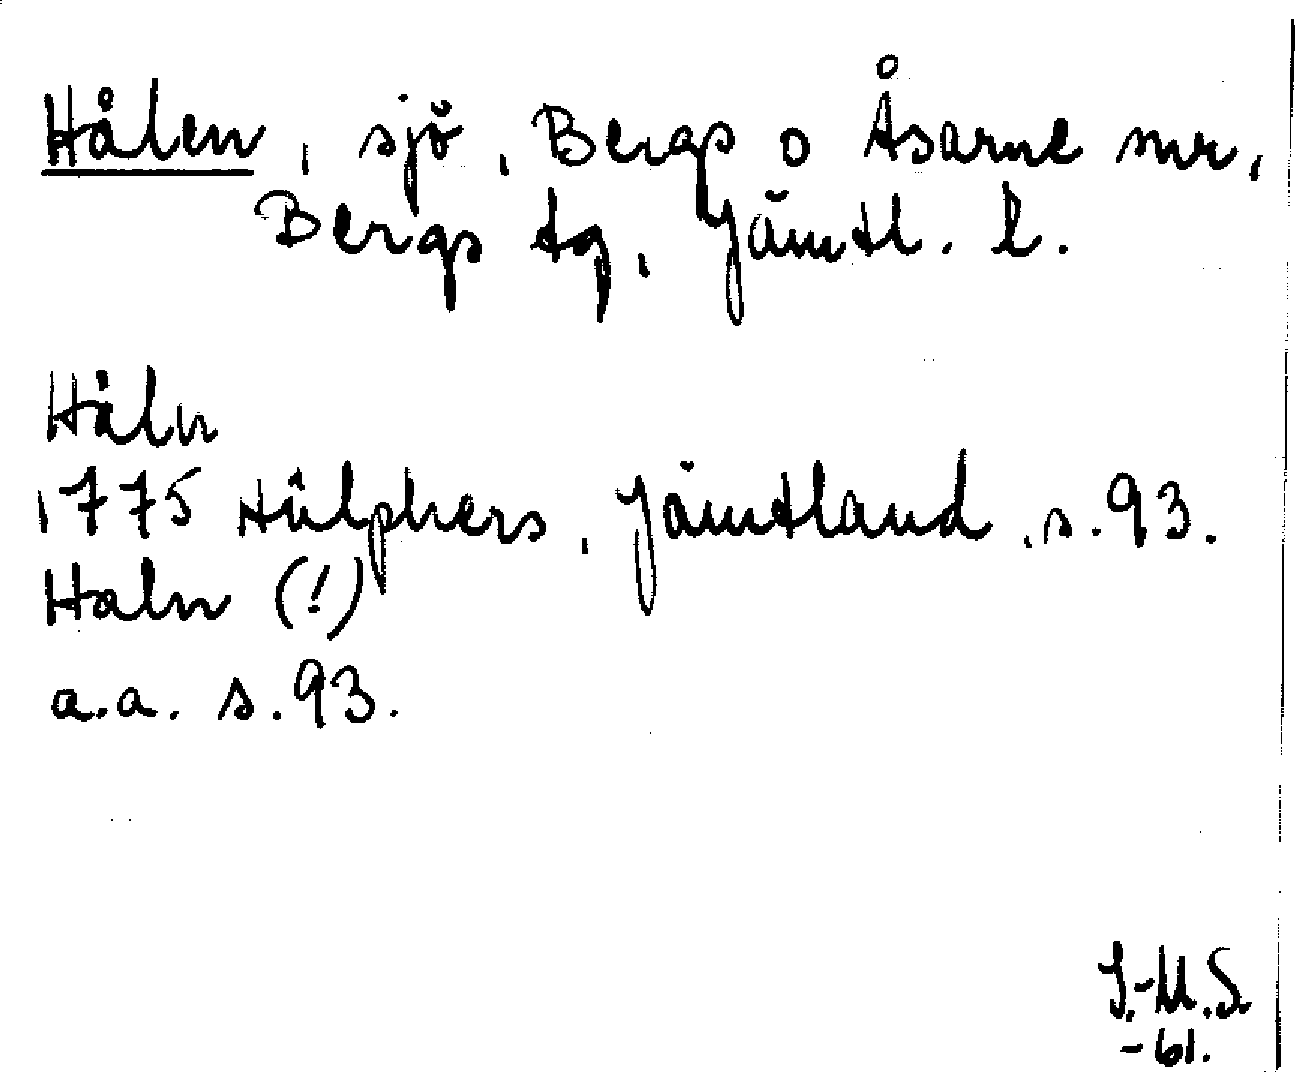 Hålen, sjö, Bergs o Åsarne snr,
Bergs tg, Jämtl. l.
Håln
1775 Hülphers, Jämtland, s. 93.
Haln (!)
a.a. s. 93.
J.-M.S.
-61.